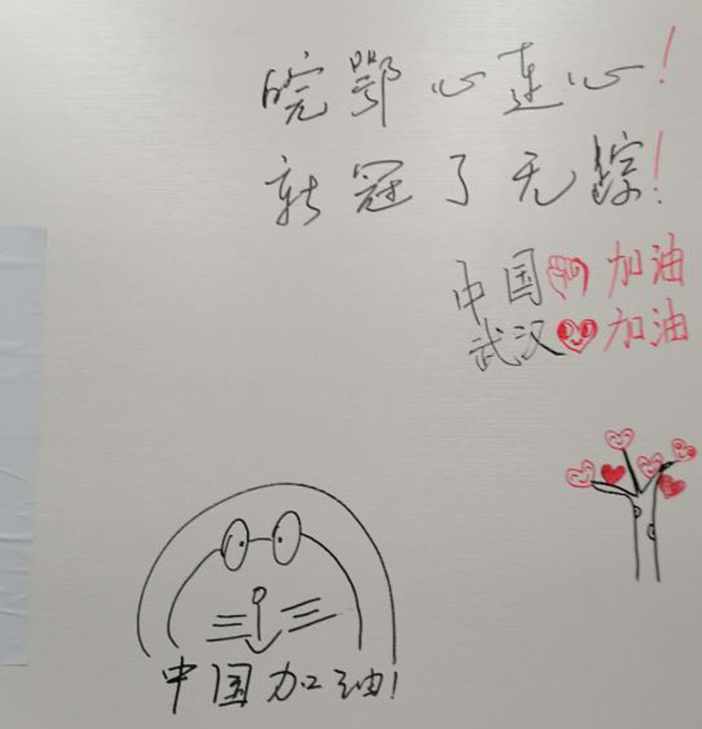 皖鄂心连心！
新冠了无踪！
中国加油
武汉加油
中国加油！